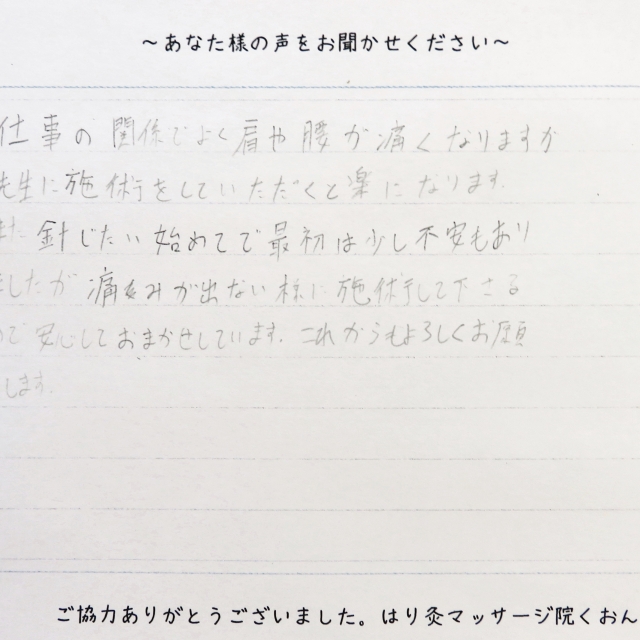 ～あなた様の声をお聞かせください～
仕事の関係でよく肩や腰が痛くなりますが
先生に施術をしていただくと楽になります。
また針じたい始めてで最初は少し不安もあり
ましたが痛みが出ない様に施術して下さる
ので安心しておまかせしています。これからもよろしくお願
します。
ご協力ありがとうございました。はり灸マッサージ院くおん